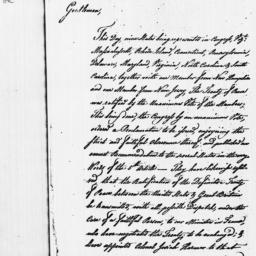 Gentlemen,
This Day, nine States being represented in Congress Viz.
Massachusetts, Rhode Island, Connecticut, Pennsylvania,
Delaware, Maryland, Virginia, North Carolina & South
Carolina, together with one Member from New Hampshire
and one Member from New Jersey, The Treaty of Peace
was ratified by the unanimous Vote of the Members;
This being done, the Congress by an unanimous Vote,
ordered a Proclamation to be issued, enjoining the
strict and faithful observance thereof, and
earnest Recommendation to the several States in the very
Words of the
and, that the Ratification of the Definitive Treaty
of Peace between the United States & Great Britain
be transmitted with all possible Dispatch, under the
Care of a faithful Person, to our Ministers in France
who have negotiated the Treaty, to be exchanged; &
have appointed Colonel Josiah Harmar to that